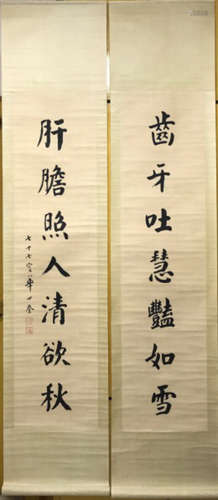 齒牙吐慧豔如雪
肝膽照人清欲秋
七十七字章士釗